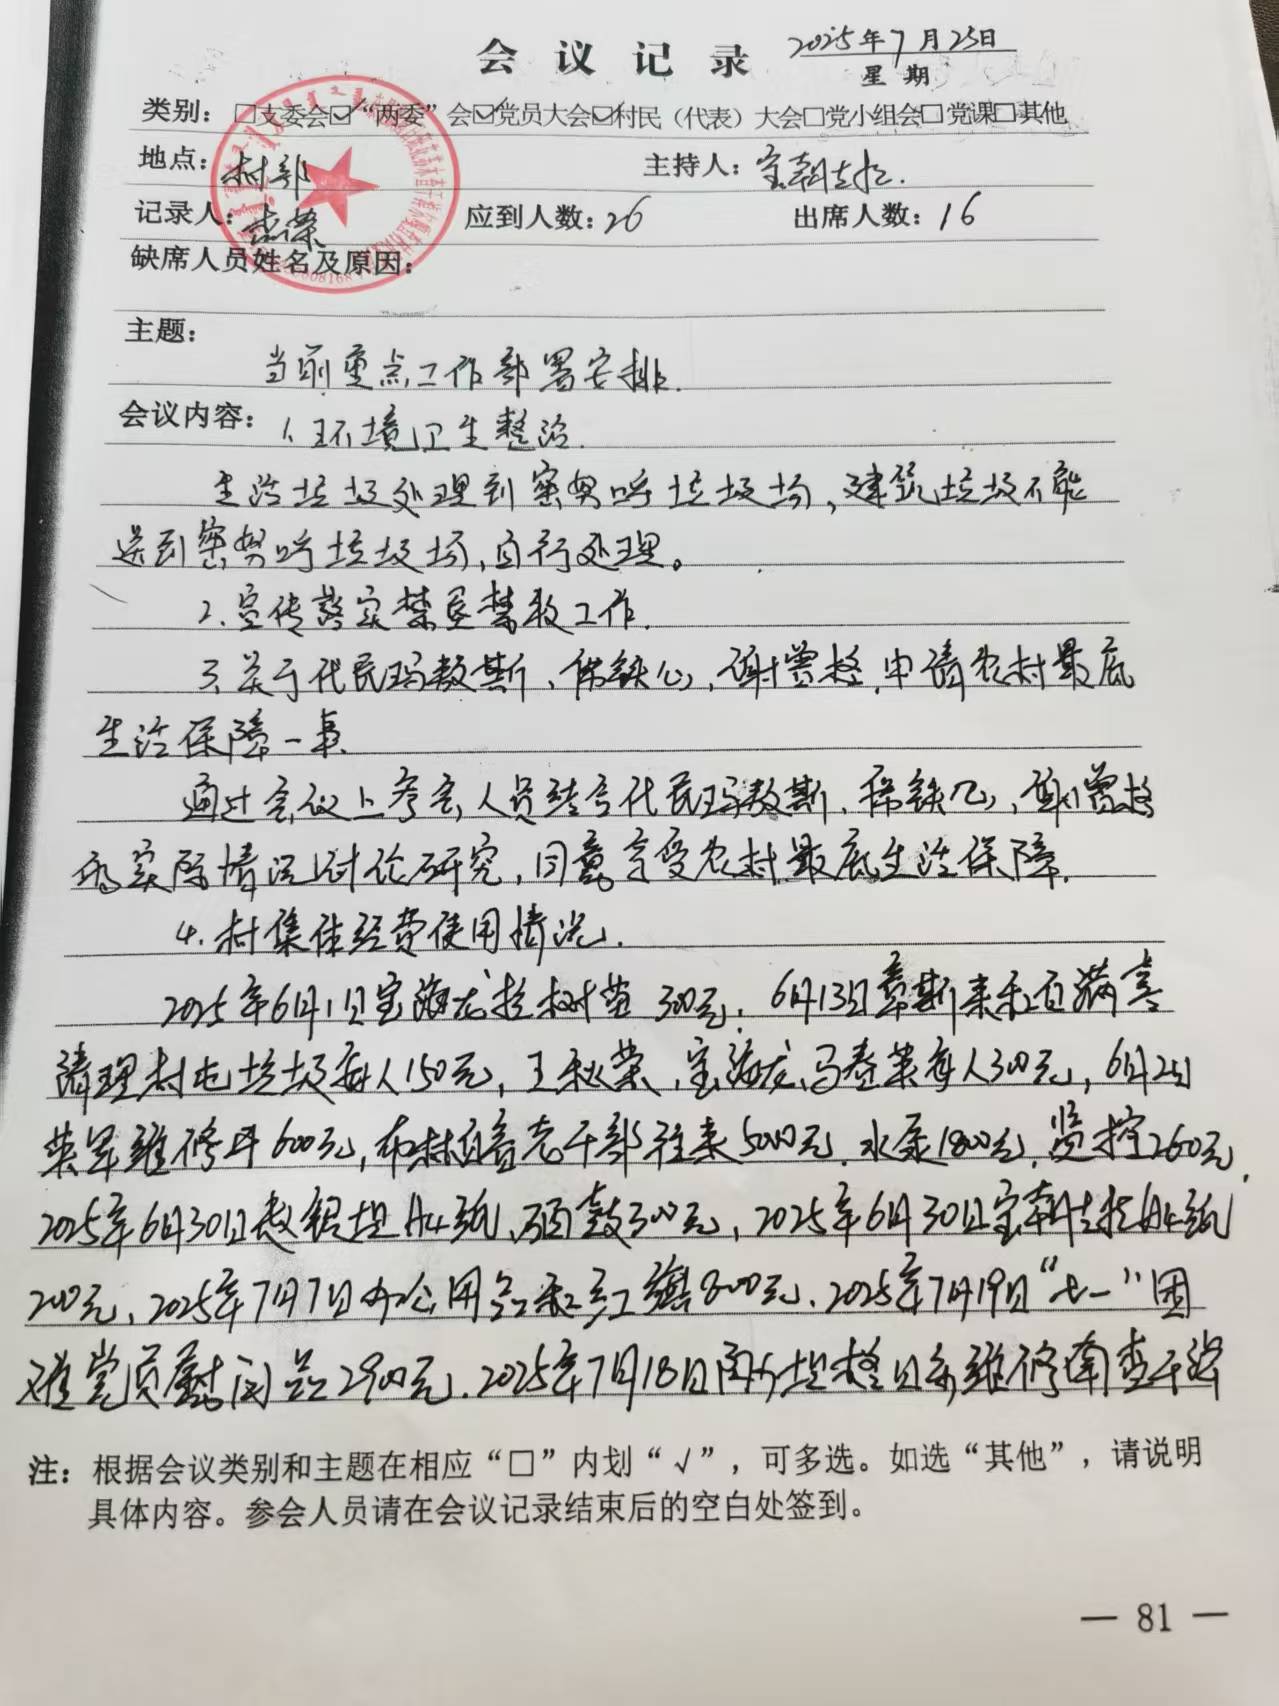 会议记录 2025年7月25日
星期
类别：□支委会☑“两委”会☑党员大会☑村民（代表）大会□党小组会□党课□其他
地点：村部 主持人：宝朝吉拉.
记录人： 应到人数：26 出席人数：16
缺席人员姓名及原因：
主题：
当前重点工作部署安排.
会议内容：1.环境卫生整治.
生活垃圾处理到 垃圾场，建筑垃圾不能
送到 垃圾场，自行处理。
2.宣传落实禁垦禁牧工作.
3.关于代民玛敖斯、 铁心，谢曾格.申请农村最底
生活保障一事
通过会议上参会人员结合代民玛敖斯、 铁心，谢曾格
的实际情况讨论研究，同意享受农村最底生活保障.
4.村集体经费使用情况.
2025年6月1日宝海龙拉树苗300元. 6月13日 斯来和白满喜
清理村屯垃圾每人150元，王秋荣、宝海龙、马春荣每人300元，6月25日
英军维修井600元， 老干部往来5000元.水泵1800元.监控260元.
2025年6月30日 银坦A4纸、硒鼓300元，2025年6月30日宝朝吉拉A4纸
200元，2025年7月7日办公用品和红旗800元.2025年7月19日“七一”困
难党员慰问品2900元.2025年7月18日 维修南查干
注：根据会议类别和主题在相应“□”内划“√”，可多选。如选“其他”，请说明
具体内容。参会人员请在会议记录结束后的空白处签到。
— 81 —